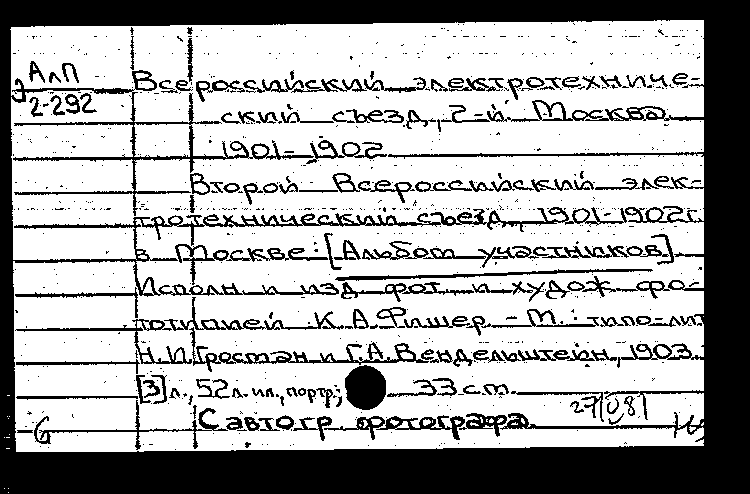 эАлП
2-292
Всероссийский электротехниче-
ский съезд, 2-й. Москва.
1901-1902
Второй Всероссийский элек-
тротехнический съезд, 1901-1902г.
в Москве: [Альбом участников].
Исполн. и изд. фот. и худож. фо-
тотипией К.А.Фишер. - М.: типо-лит.
Н.И.Гростэн и Г.А.Вендельштейн, 1903.
[3] л., 52л. ил., портр.; 33 cm.
С автогр. фотографа.
G